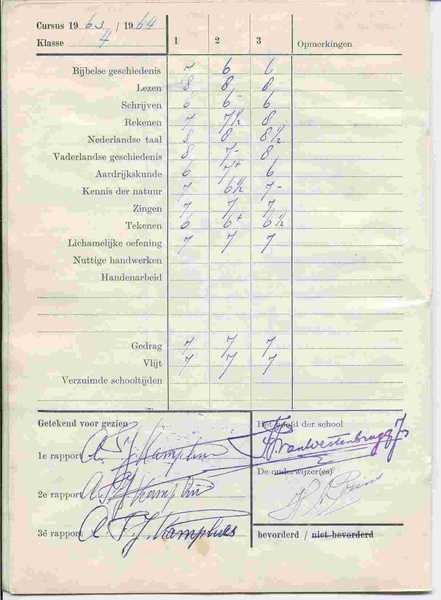 Cursus 1963 / 1964
Klasse 4 1 2 3 Opmerkingen
Bijbelse geschiedenis 7 6 6
Lezen 8 8 8
Schrijven 6 6- 6
Rekenen 7 7½ 8
Nederlandse taal 8 8 8½
Vaderlandse geschiedenis 8 7- 8
Aardrijkskunde 6 7+ 6
Kennis der natuur 7 6½ 7-
Zingen 7 7 7
Tekenen 6 6+ 6½
Lichamelijke oefening 7 7 7
Nuttige handwerken
Handenarbeid
Gedrag 7 7 7
Vlijt 7 7 7
Verzuimde schooltijden
Getekend voor gezien
1e rapport
2e rapport
3e rapport A P J Kamphues
Het hoofd der school
De onderwijzer(es)
bevorderd / niet bevorderd